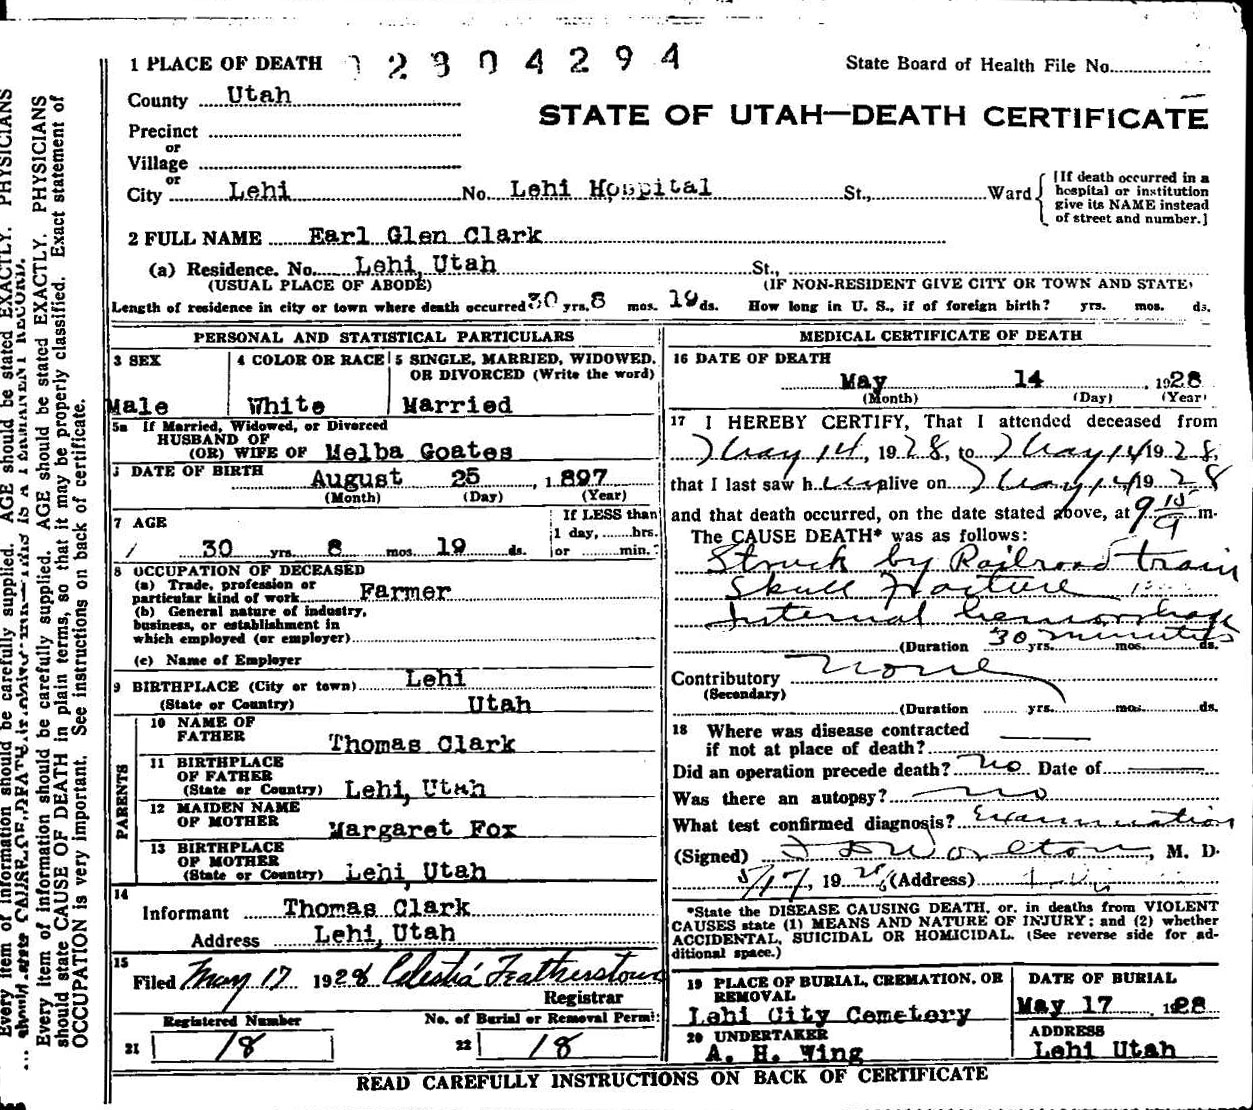 1 PLACE OF DEATH 2304294 State Board of Health File No.
County Utah
STATE OF UTAH—DEATH CERTIFICATE
Precinct
or
Village
or
City Lehi No. Lehi Hospital St., Ward
[If death occurred in a
hospital or institution
give its NAME instead
of street and number.]
2 FULL NAME Earl Glen Clark
(a) Residence. No. Lehi, Utah St.,
(USUAL PLACE OF ABODE) (IF NON-RESIDENT GIVE CITY OR TOWN AND STATE)
Length of residence in city or town where death occurred 30 yrs. 8 mos. 19 ds. How long in U. S., if of foreign birth? yrs. mos. ds.
PERSONAL AND STATISTICAL PARTICULARS
3 SEX 4 COLOR OR RACE 5 SINGLE, MARRIED, WIDOWED,
OR DIVORCED (Write the word)
Male White Married
5a If Married, Widowed, or Divorced
HUSBAND OF
(OR) WIFE OF Melba Goates
DATE OF BIRTH August 25, 1897
(Month) (Day) (Year)
7 AGE If LESS than
1 day, hrs.
30 yrs. 8 mos. 19 ds. or min.
8 OCCUPATION OF DECEASED
(a) Trade, profession or
particular kind of work Farmer
(b) General nature of industry,
business, or establishment in
which employed (or employer)
(c) Name of Employer
9 BIRTHPLACE (City or town) Lehi
(State or Country) Utah
PARENTS
10 NAME OF
FATHER Thomas Clark
11 BIRTHPLACE
OF FATHER
(State or Country) Lehi, Utah
12 MAIDEN NAME
OF MOTHER Margaret Fox
13 BIRTHPLACE
OF MOTHER
(State or Country) Lehi, Utah
14
Informant Thomas Clark
Address Lehi, Utah
15
Filed May 17 1928 Celestia Featherstone
Registrar
Registered Number No. of Burial or Removal Permit
21 18 22 18
MEDICAL CERTIFICATE OF DEATH
16 DATE OF DEATH
May 14, 1928
(Month) (Day) (Year)
17 I HEREBY CERTIFY, That I attended deceased from
May 14, 1928, to May 14 1928,
that I last saw h alive on May 14 1928
and that death occurred, on the date stated above, at 9 15 m.
The CAUSE DEATH* was as follows:
Struck by Railroad train
Skull Fracture
Internal hemorrhage
(Duration 30 minutes yrs. mos. ds.
Contributory None
(Secondary)
(Duration yrs. mos. ds.
18 Where was disease contracted
if not at place of death?
Did an operation precede death? no Date of
Was there an autopsy? no
What test confirmed diagnosis? Examination
(Signed) Worlton, M. D.
5/17, 1928 (Address)
*State the DISEASE CAUSING DEATH, or, in deaths from VIOLENT
CAUSES state (1) MEANS AND NATURE OF INJURY; and (2) whether
ACCIDENTAL, SUICIDAL OR HOMICIDAL. (See reverse side for ad-
ditional space.)
19 PLACE OF BURIAL, CREMATION, OR
REMOVAL
Lehi City Cemetery
DATE OF BURIAL
May 17 1928
20 UNDERTAKER
A. H. Wing
ADDRESS
Lehi Utah
READ CAREFULLY INSTRUCTIONS ON BACK OF CERTIFICATE
Every item of information should be carefully supplied. AGE should be stated EXACTLY. PHYSICIANS
should state CAUSE OF DEATH in plain terms, so that it may be properly classified. Exact statement of
OCCUPATION is very important. See instructions on back of certificate.